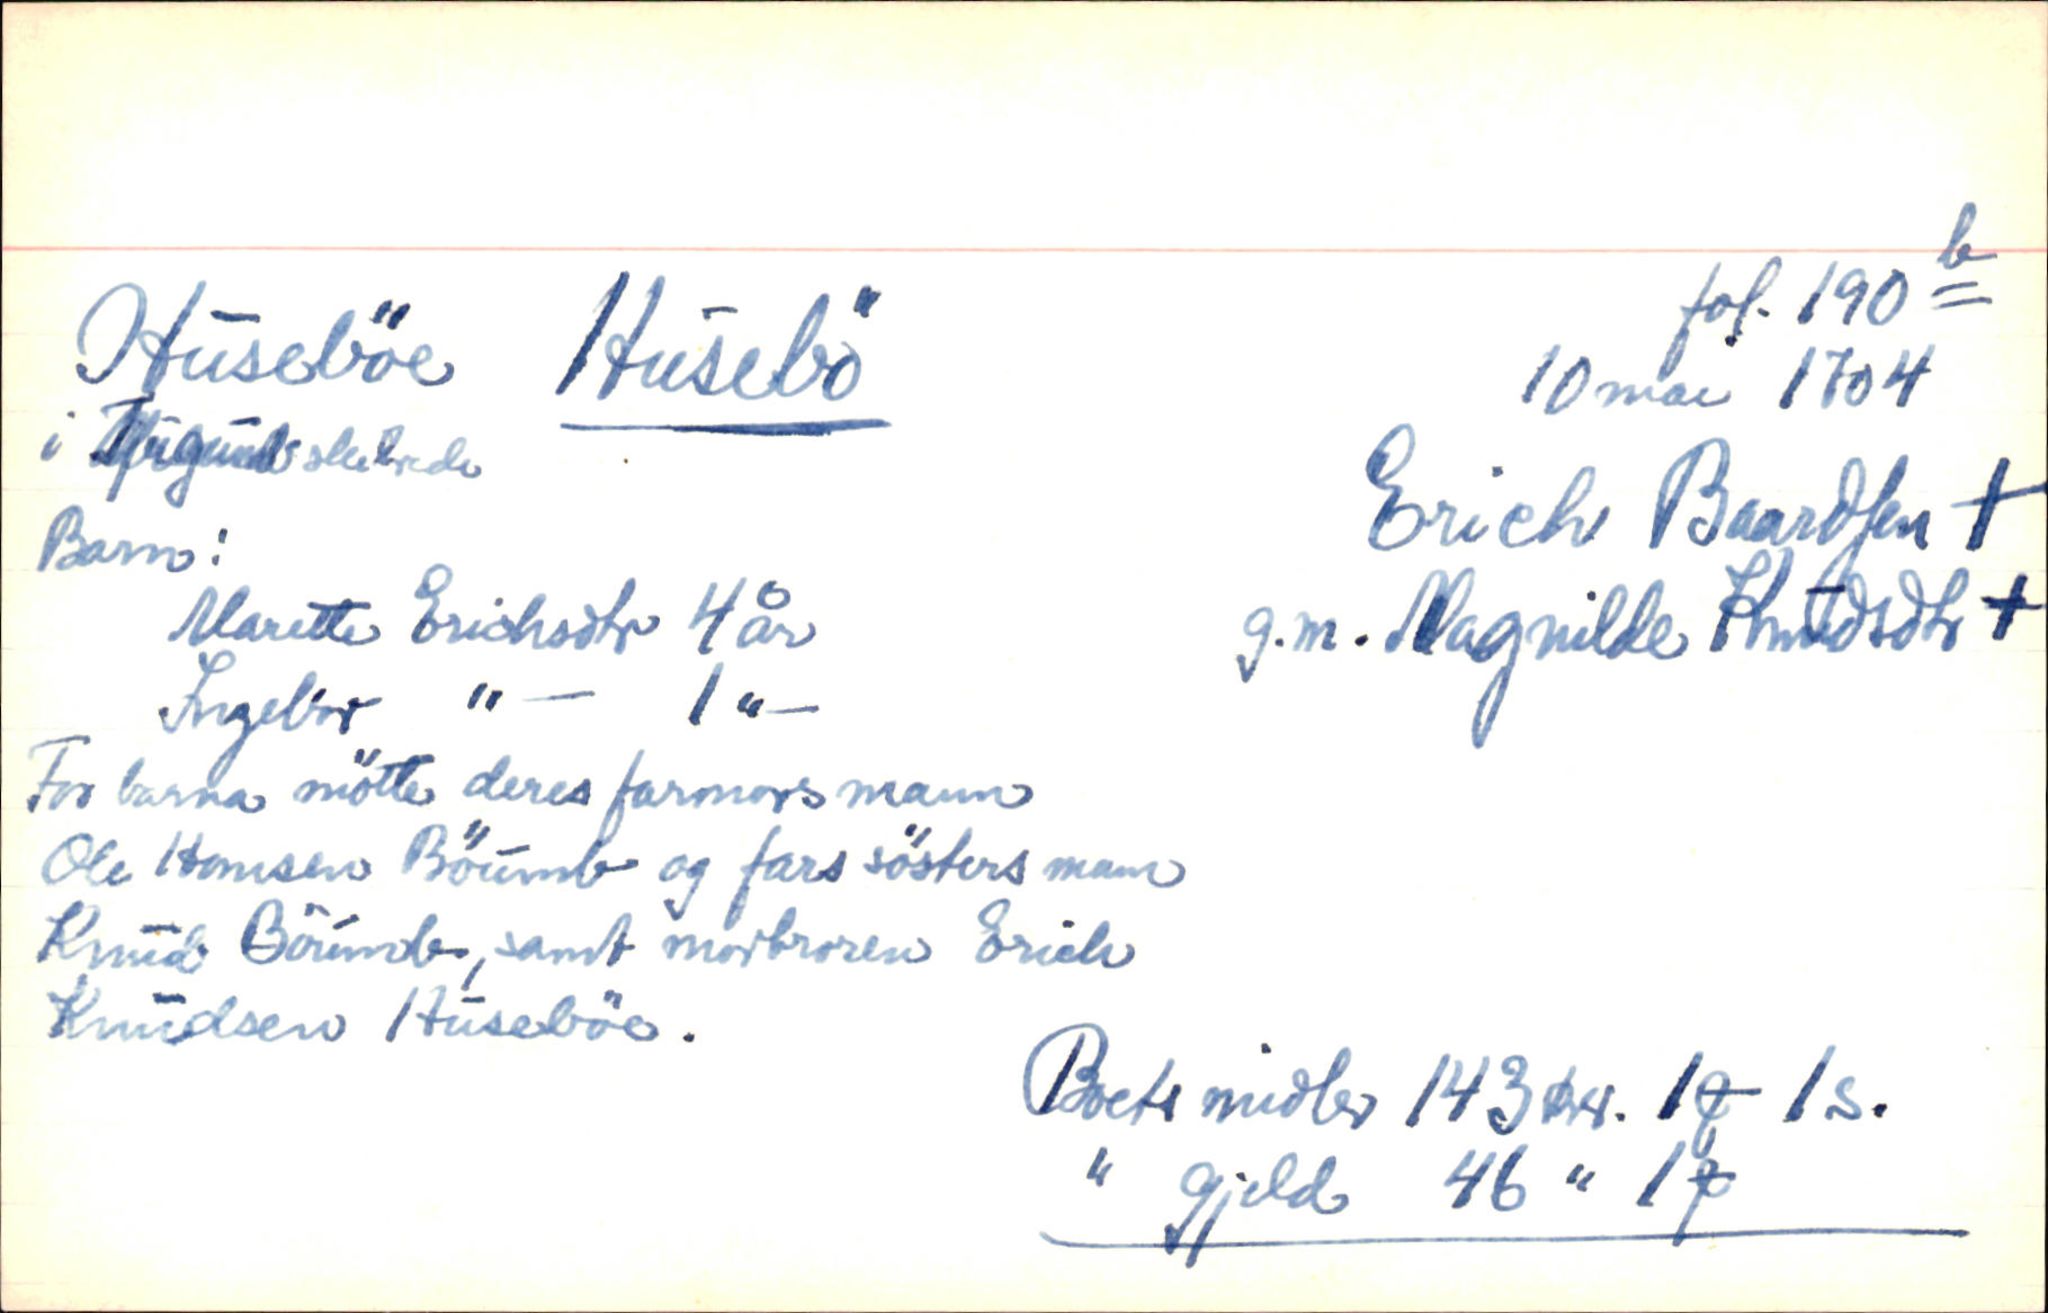 fol. 190 b
Huseböe Husebö
10 mai 1704
i skibrede
Erich Baardsen †
Barn:
g.m. Magnilde Knudsdtr †
Marette Erichsdtr 4 år
Ingebor " — 1 " —
For barna mötte deres farmors mann
Ole Hansen Böumb og fars sösters mann
Knud Böumb, samt morbroren Erich
Knudsen Huseböe.
Boets midler 143 1 1 s.
" gjeld 46 " 1